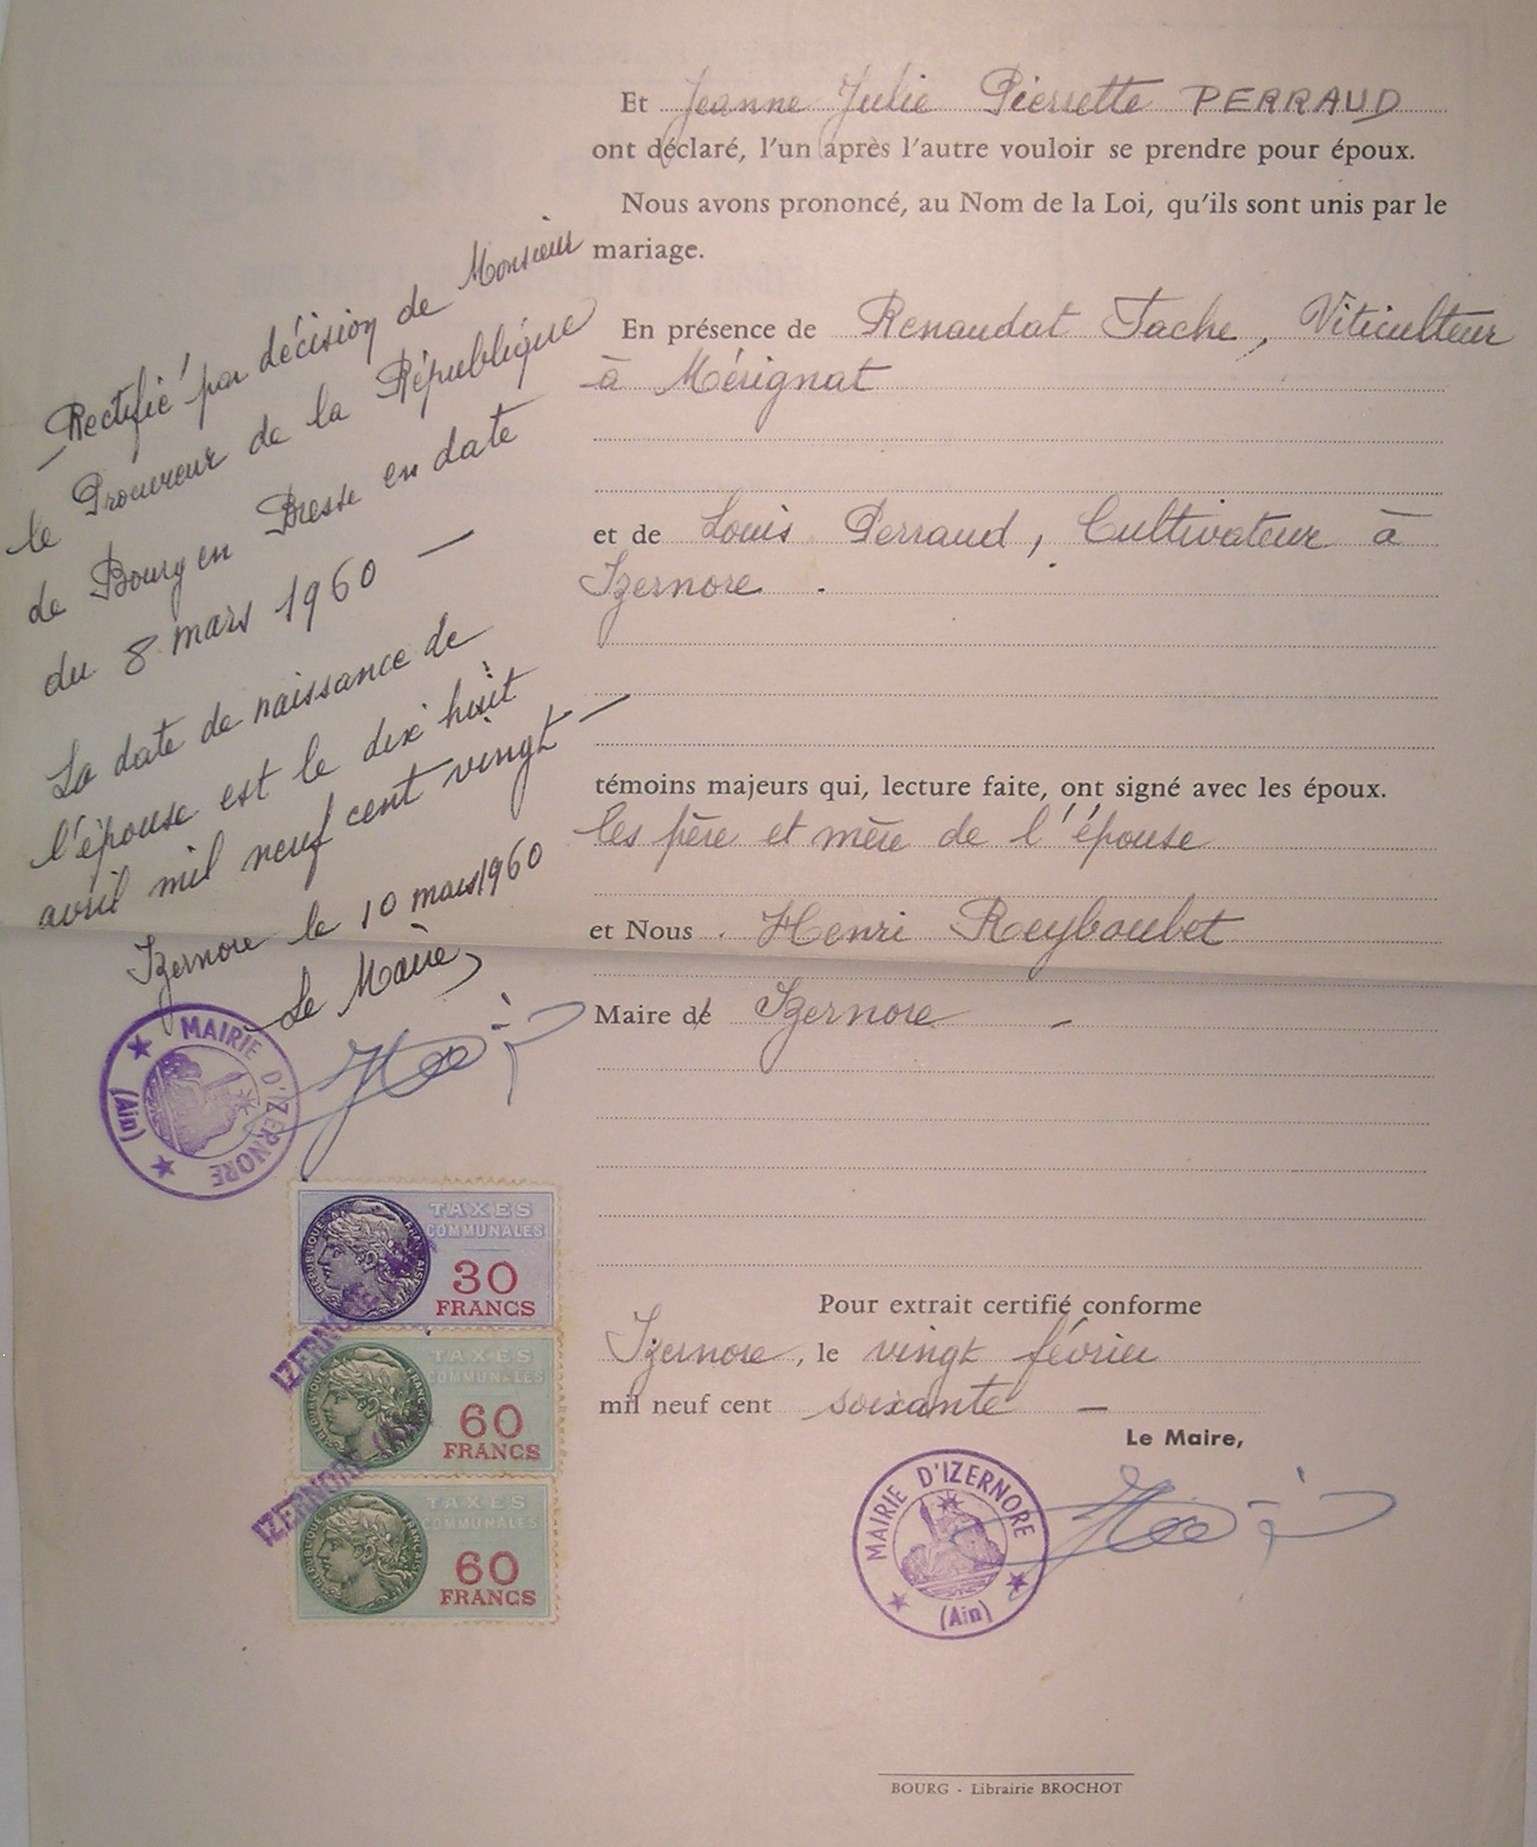 Et Jeanne Julie Pierrette PERRAUD
ont déclaré, l'un après l'autre vouloir se prendre pour époux.
Nous avons prononcé, au Nom de la Loi, qu'ils sont unis par le
mariage.
En présence de Renaudat Tache, Viticulteur
à Mérignat
et de Louis Perraud, Cultivateur à
Izernore.
témoins majeurs qui, lecture faite, ont signé avec les époux.
les père et mère de l'épouse
et Nous Henri Reyboubet
Maire de Izernore -
Pour extrait certifié conforme
Izernore, le vingt février
mil neuf cent soixante -
Le Maire,
MAIRIE D'IZERNORE
(Ain)
BOURG - Librairie BROCHOT
Rectifié par décision de Monsieur
le Procureur de la République
de Bourg en Bresse en date
du 8 mars 1960 -
La date de naissance de
l'épouse est le dix huit
avril mil neuf cent vingt -
Izernore le 10 mars 1960
Le Maire,
MAIRIE D'IZERNORE
(Ain)
REPUBLIQUE FRANÇAISE
TAXES
COMMUNALES
30
FRANCS
IZERNORE (Ain)
REPUBLIQUE FRANÇAISE
TAXES
COMMUNALES
60
FRANCS
IZERNORE (Ain)
REPUBLIQUE FRANÇAISE
TAXES
COMMUNALES
60
FRANCS